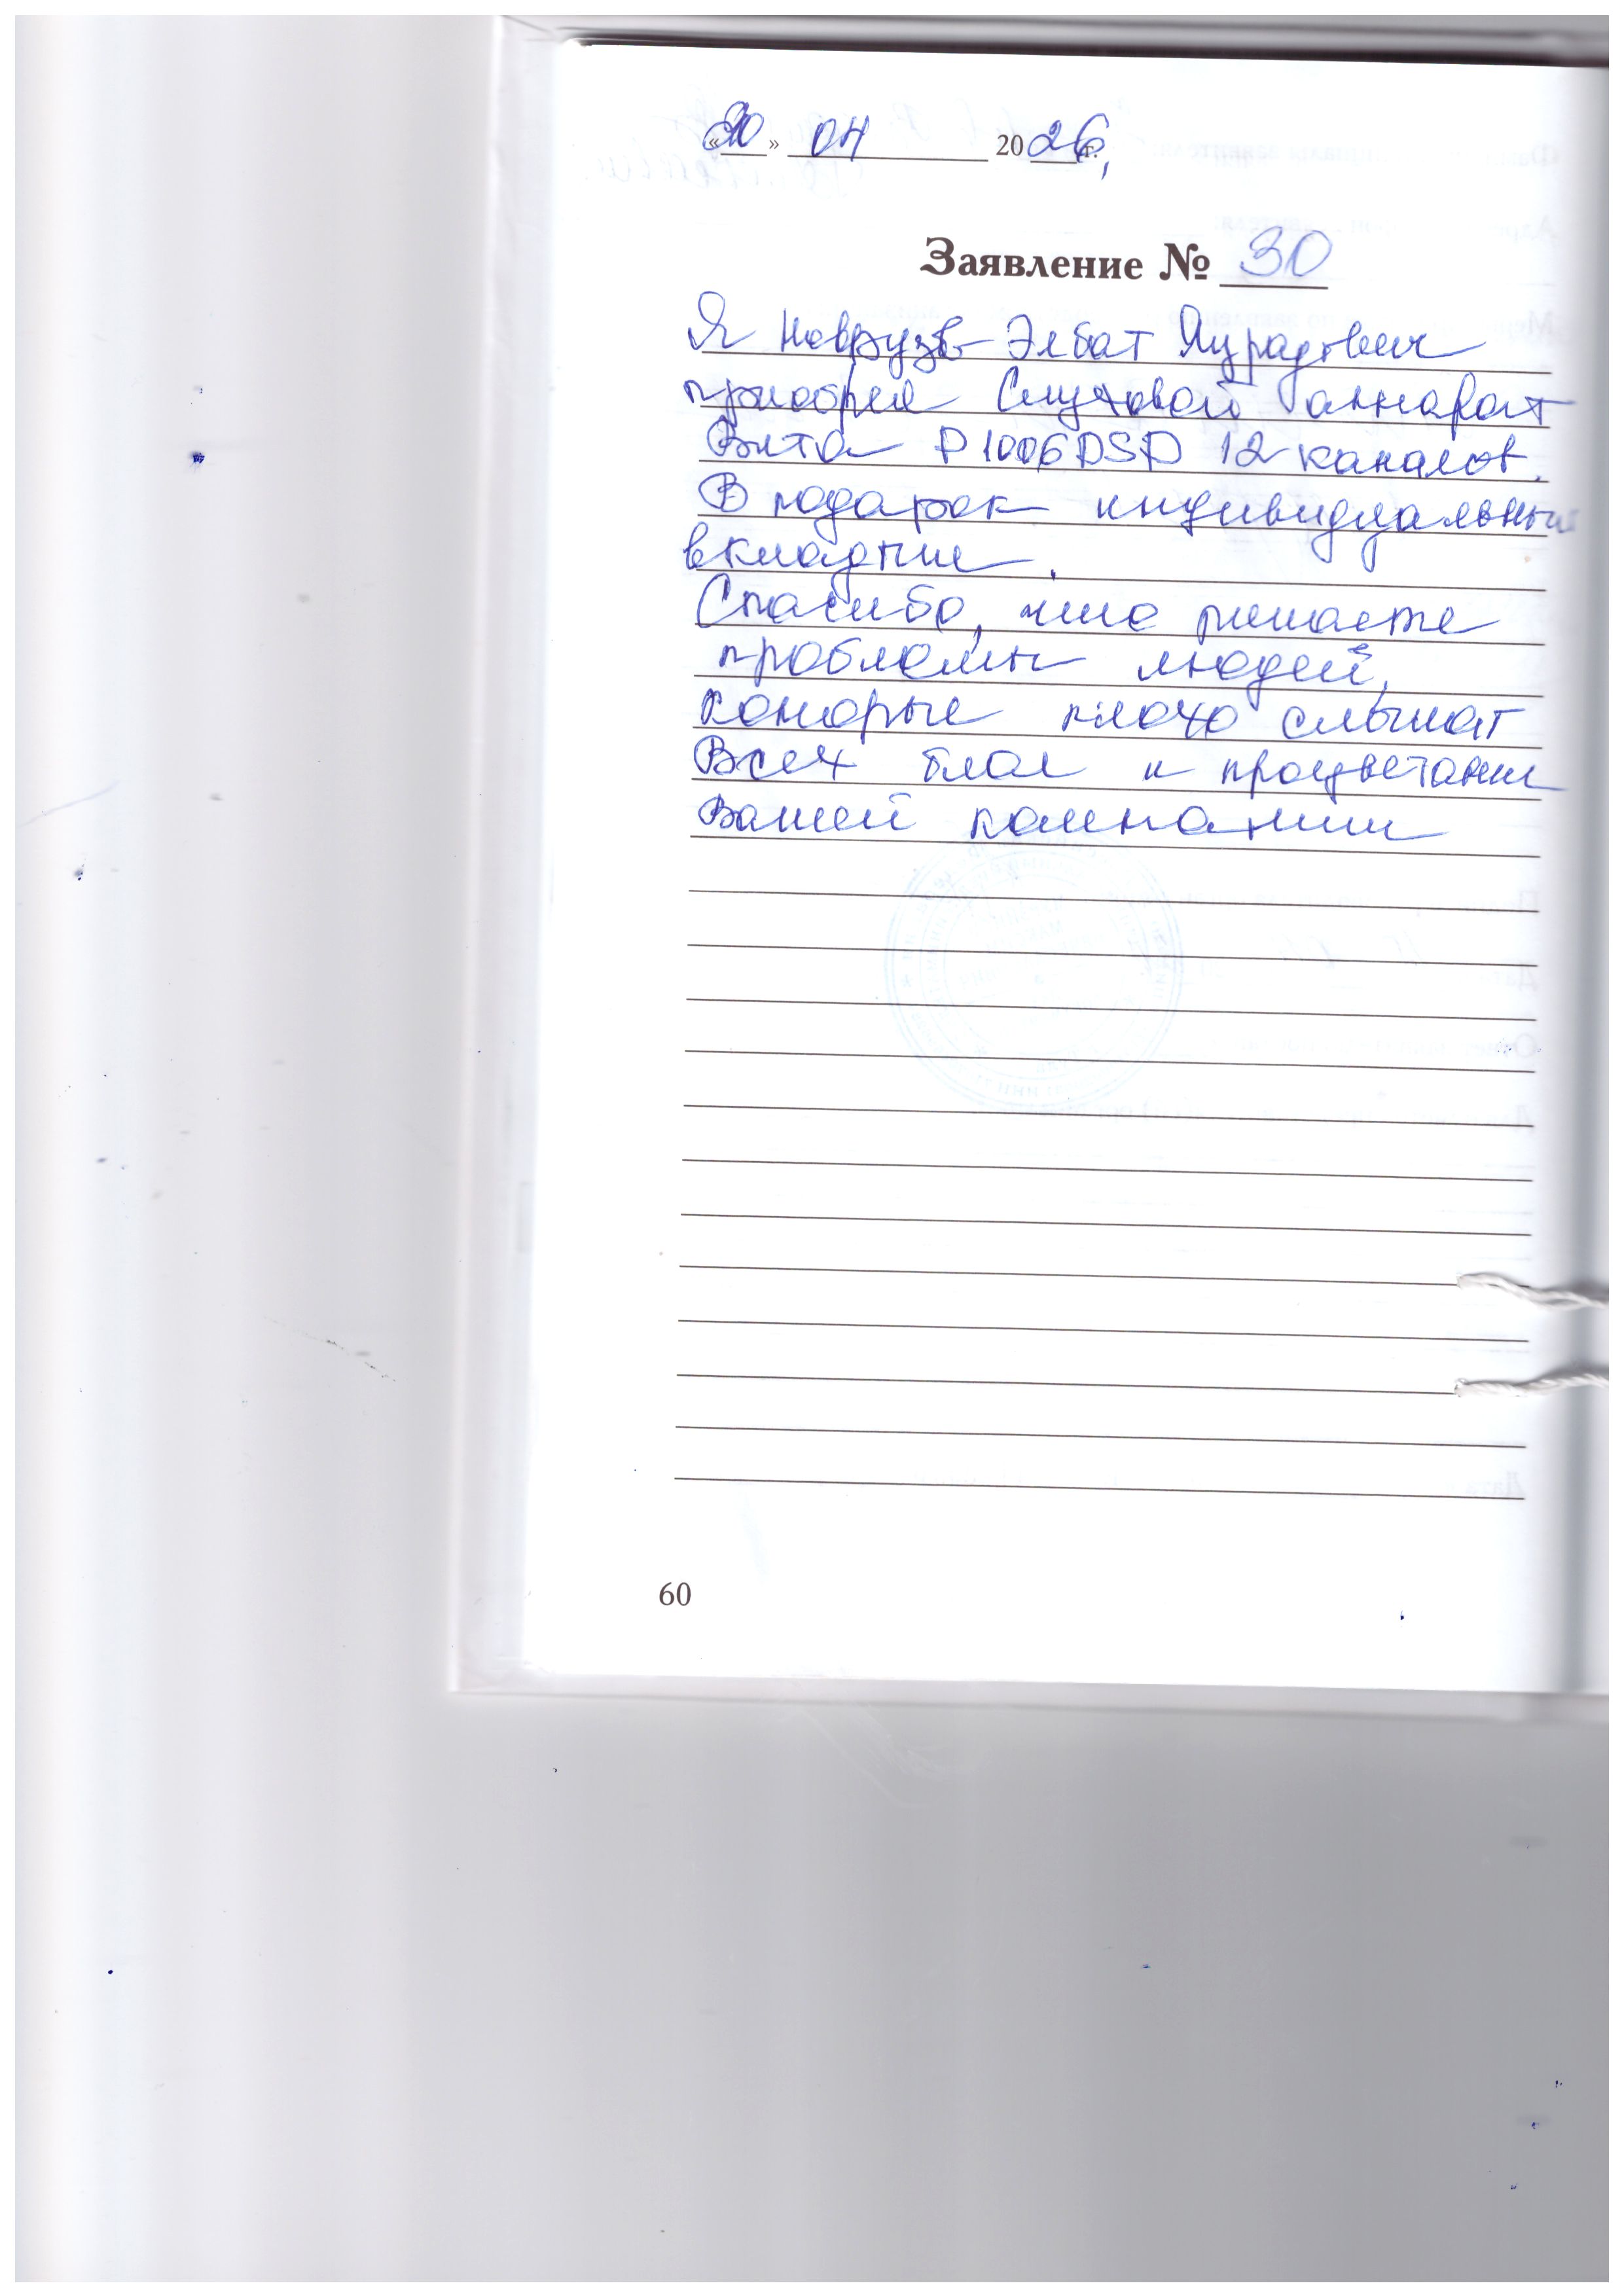 «20» 04 2026 г.
Заявление № 30
Я Новрузов Элбат
приобрел Слуховой аппарат
Витa P1006DSP 12 каналов.
В подарок индивидуальный
вкладыш.
Спасибо, что решаете
проблемы людей,
которые плохо слышат
Всех благ и процветания
Вашей компании
60